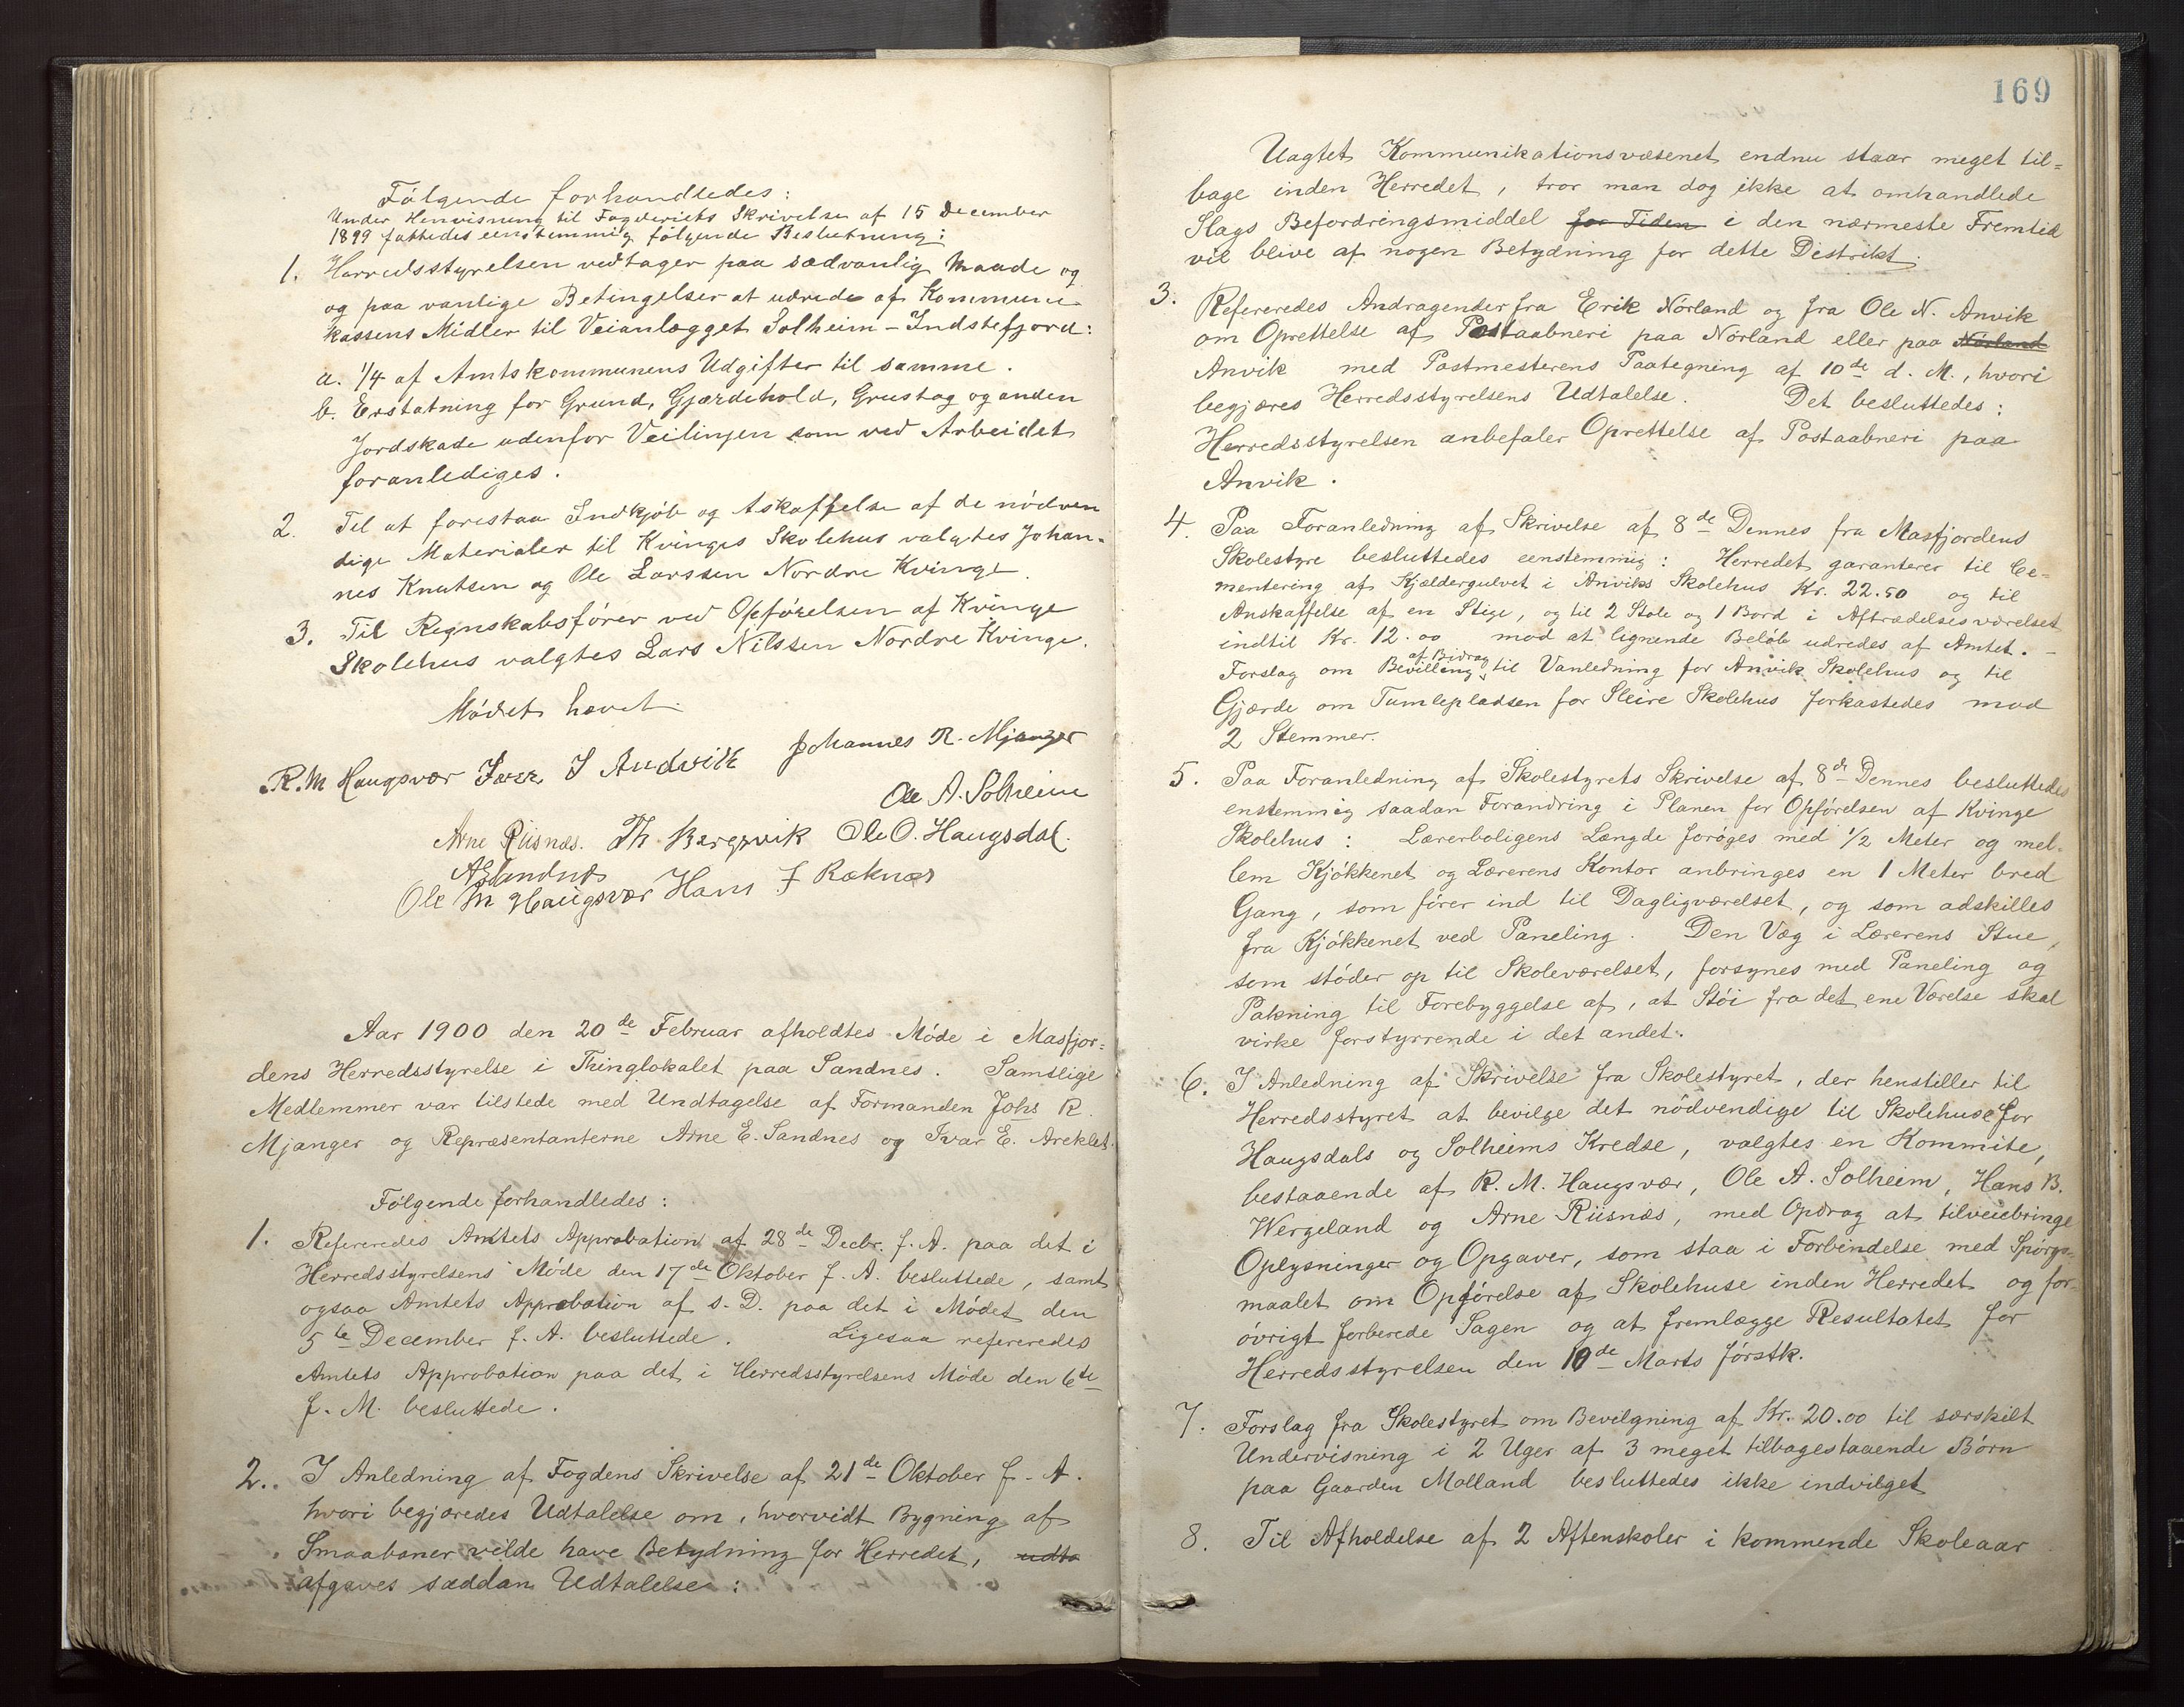 Følgende forhandledes:
Under Henvisning til Fogderiets Skrivelse af 15 December
1899 fattedes eenstemmig følgende Beslutning:
1. Herredsstyrelsen vedtager paa sædvanlig Maade og
og paa vanlige Betingelser at udrede af Kommune
kassens Midler til Veianlægget Solheim - Indstefjord:
a. 1/4 af Amtskommunens Udgifter til samme.
b. Erstatning for Grund, Gjærdehold, Grustag og anden
Jordskade udenfor Veilinjen som ved Arbeidet
foranlediges.
2. Til at forestaa Indkjøb og Askaffelse af de nødven
dige Materialer til Kvinges Skolehus valgtes Johan-
nes Knutsen og Ole Larssen Nordre Kvinge.
3. Til Regnskabsfører ved Opførelsen af Kvinge
Skolehus valgtes Lars Nilssen Nordre Kvinge.
Mødet hævet.
R. M Haugsvær Ivar I Andvik Johannes R. Mjanger
Ole A. Solheim
Arne Riisnæs. Th. Bergsvik Ole O. Haugsdal.
Ole M Haugsvær Hans J Ræknæs
Aar 1900 den 20de Februar afholdtes Møde i Masfjor=
dens Herredsstyrelse i Thinglokalet paa Sandnes. Samtlige
Medlemmer var tilstede med Undtagelse af Formanden Johs R.
Mjanger og Repræsentanterne Arne E. Sandnes og Ivar E. Areklet.
Følgende forhandledes:
1. Refereredes Amtets Approbation af 28de Decbr. f. A. paa det i
Herredsstyrelsens Møde den 17de Oktober f. A. besluttede, samt
ogsaa Amtets Approbation af s. D. paa det i Mødet den
5te December f. A. besluttede. Ligesaa refereredes
Amtets Approbation paa det i Herredsstyrelsens Møde den 6te
f. M. besluttede.
2. I Anledning af Fogdens Skrivelse af 21de Oktober f. A.
hvori begjæredes Udtalelse om, hvorvidt Bygning af
Smaabaner vilde have Betydning for Herredet, udta
afgaves saadan Udtalelse:
169
Uagtet Kommunikationsvæsenet endnu staar meget til=
bage inden Herredet, tror man dog ikke at omhandlede
Slags Befordringsmiddel for Tiden i den nærmeste Fremtid
vil blive af nogen Betydning for dette Distrikt.
3. Refereredes Andragender fra Erik Nørland og fra Ole N. Anvik
om Oprettelse af Postaabneri paa Nørland eller paa Nørland
Anvik med Postmesterens Paategning af 10de d. M., hvori
begjæres Herredsstyrelsens Udtalelse. Det besluttedes:
Herredsstyrelsen anbefaler Oprettelse af Postaabneri paa
Anvik.
4. Paa Foranledning af Skrivelse af 8de Dennes fra Masfjordens
Skolestyre besluttedes eenstemmig: Herredet garanterer til Ce-
mentering af Kjældergulvet i Anviks Skolehus Kr. 22.50 og til
Anskaffelse af en Stige, og til 2 Stole og 1 Bord i Aftrædelsesværelset
indtil Kr. 12.00 mod at lignende Beløb udredes af Amtet. -
af Bidrag
Forslag om Bevilling til Vanledning for Anvik Skolehus og til
Gjærde om Tumlepladsen for Sleire Skolehus forkastedes mod
2 Stemmer.
5. Paa Foranledning af Skolestyrets Skrivelse af 8de Dennes besluttedes
enstemmig saadan Forandring i Planen for Opførelsen af Kvinge
Skolehus: Lærerboligens Længde forøges med 1/2 Meter og mel-
lem Kjøkkenet og Lærerens Kontor anbringes en 1 Meter bred
Gang, som fører ind til Dagligværelset, og som adskilles
fra Kjøkkenet ved Paneling. Den Væg i Lærerens Stue,
som støder op til Skoleværelset, forsynes med Paneling og
Pakning til Forebyggelse af, at Støi fra det ene Værelse skal
virke forstyrrende i det andet.
6. I Anledning af Skrivelse fra Skolestyret, der henstiller til
Herredsstyret at bevilge det nødvendige til Skolehuse for
Haugsdals og Solheims Kredse, valgtes en Kommite,
bestaaende af R. M. Haugsvær, Ole A. Solheim, Hans B.
Wergeland og Arne Riisnæs, med Opdrag at tilveiebringe
Oplysninger og Opgaver, som staa i Forbindelse med Spørgs-
maalet om Opførelse af Skolehuse inden Herredet og for-
øvrigt forberede Sagen og at fremlægge Resultatet for
Herredsstyrelsen den 10de Marts førstk.
7. Forslag fra Skolestyret om Bevilgning af Kr. 20.00 til særskilt
Undervisning i 2 Uger af 3 meget tilbagestaaende Børn
paa Gaarden Molland besluttedes ikke indvilget
8. Til Afholdelse af 2 Aftenskoler i kommende Skoleaar